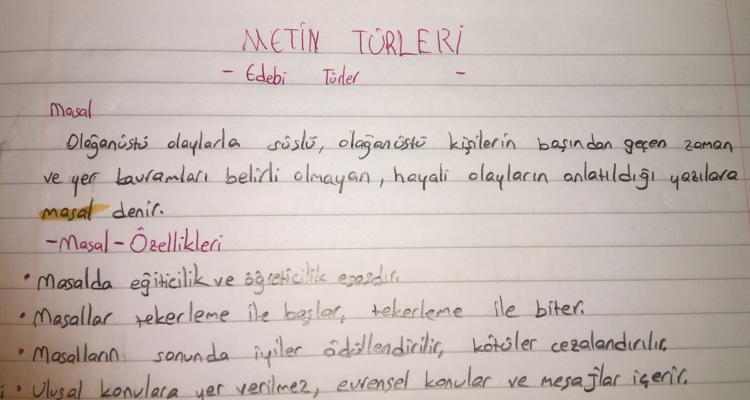 METİN TÜRLERİ
- Edebi Türler -
Masal
Olağanüstü olaylarla süslü, olağanüstü kişilerin başından geçen zaman
ve yer kavramları belirli olmayan, hayali olayların anlatıldığı yazılara
masal denir.
-Masal-Özellikleri
• Masalda eğiticilik ve öğreticilik esasdır.
• Masallar tekerleme ile başlar, tekerleme ile biter.
• Masalların sonunda iyiler ödüllendirilir, kötüler cezalandırılır.
• Ulusal konulara yer verilmez, evrensel konular ve mesajlar içerir.